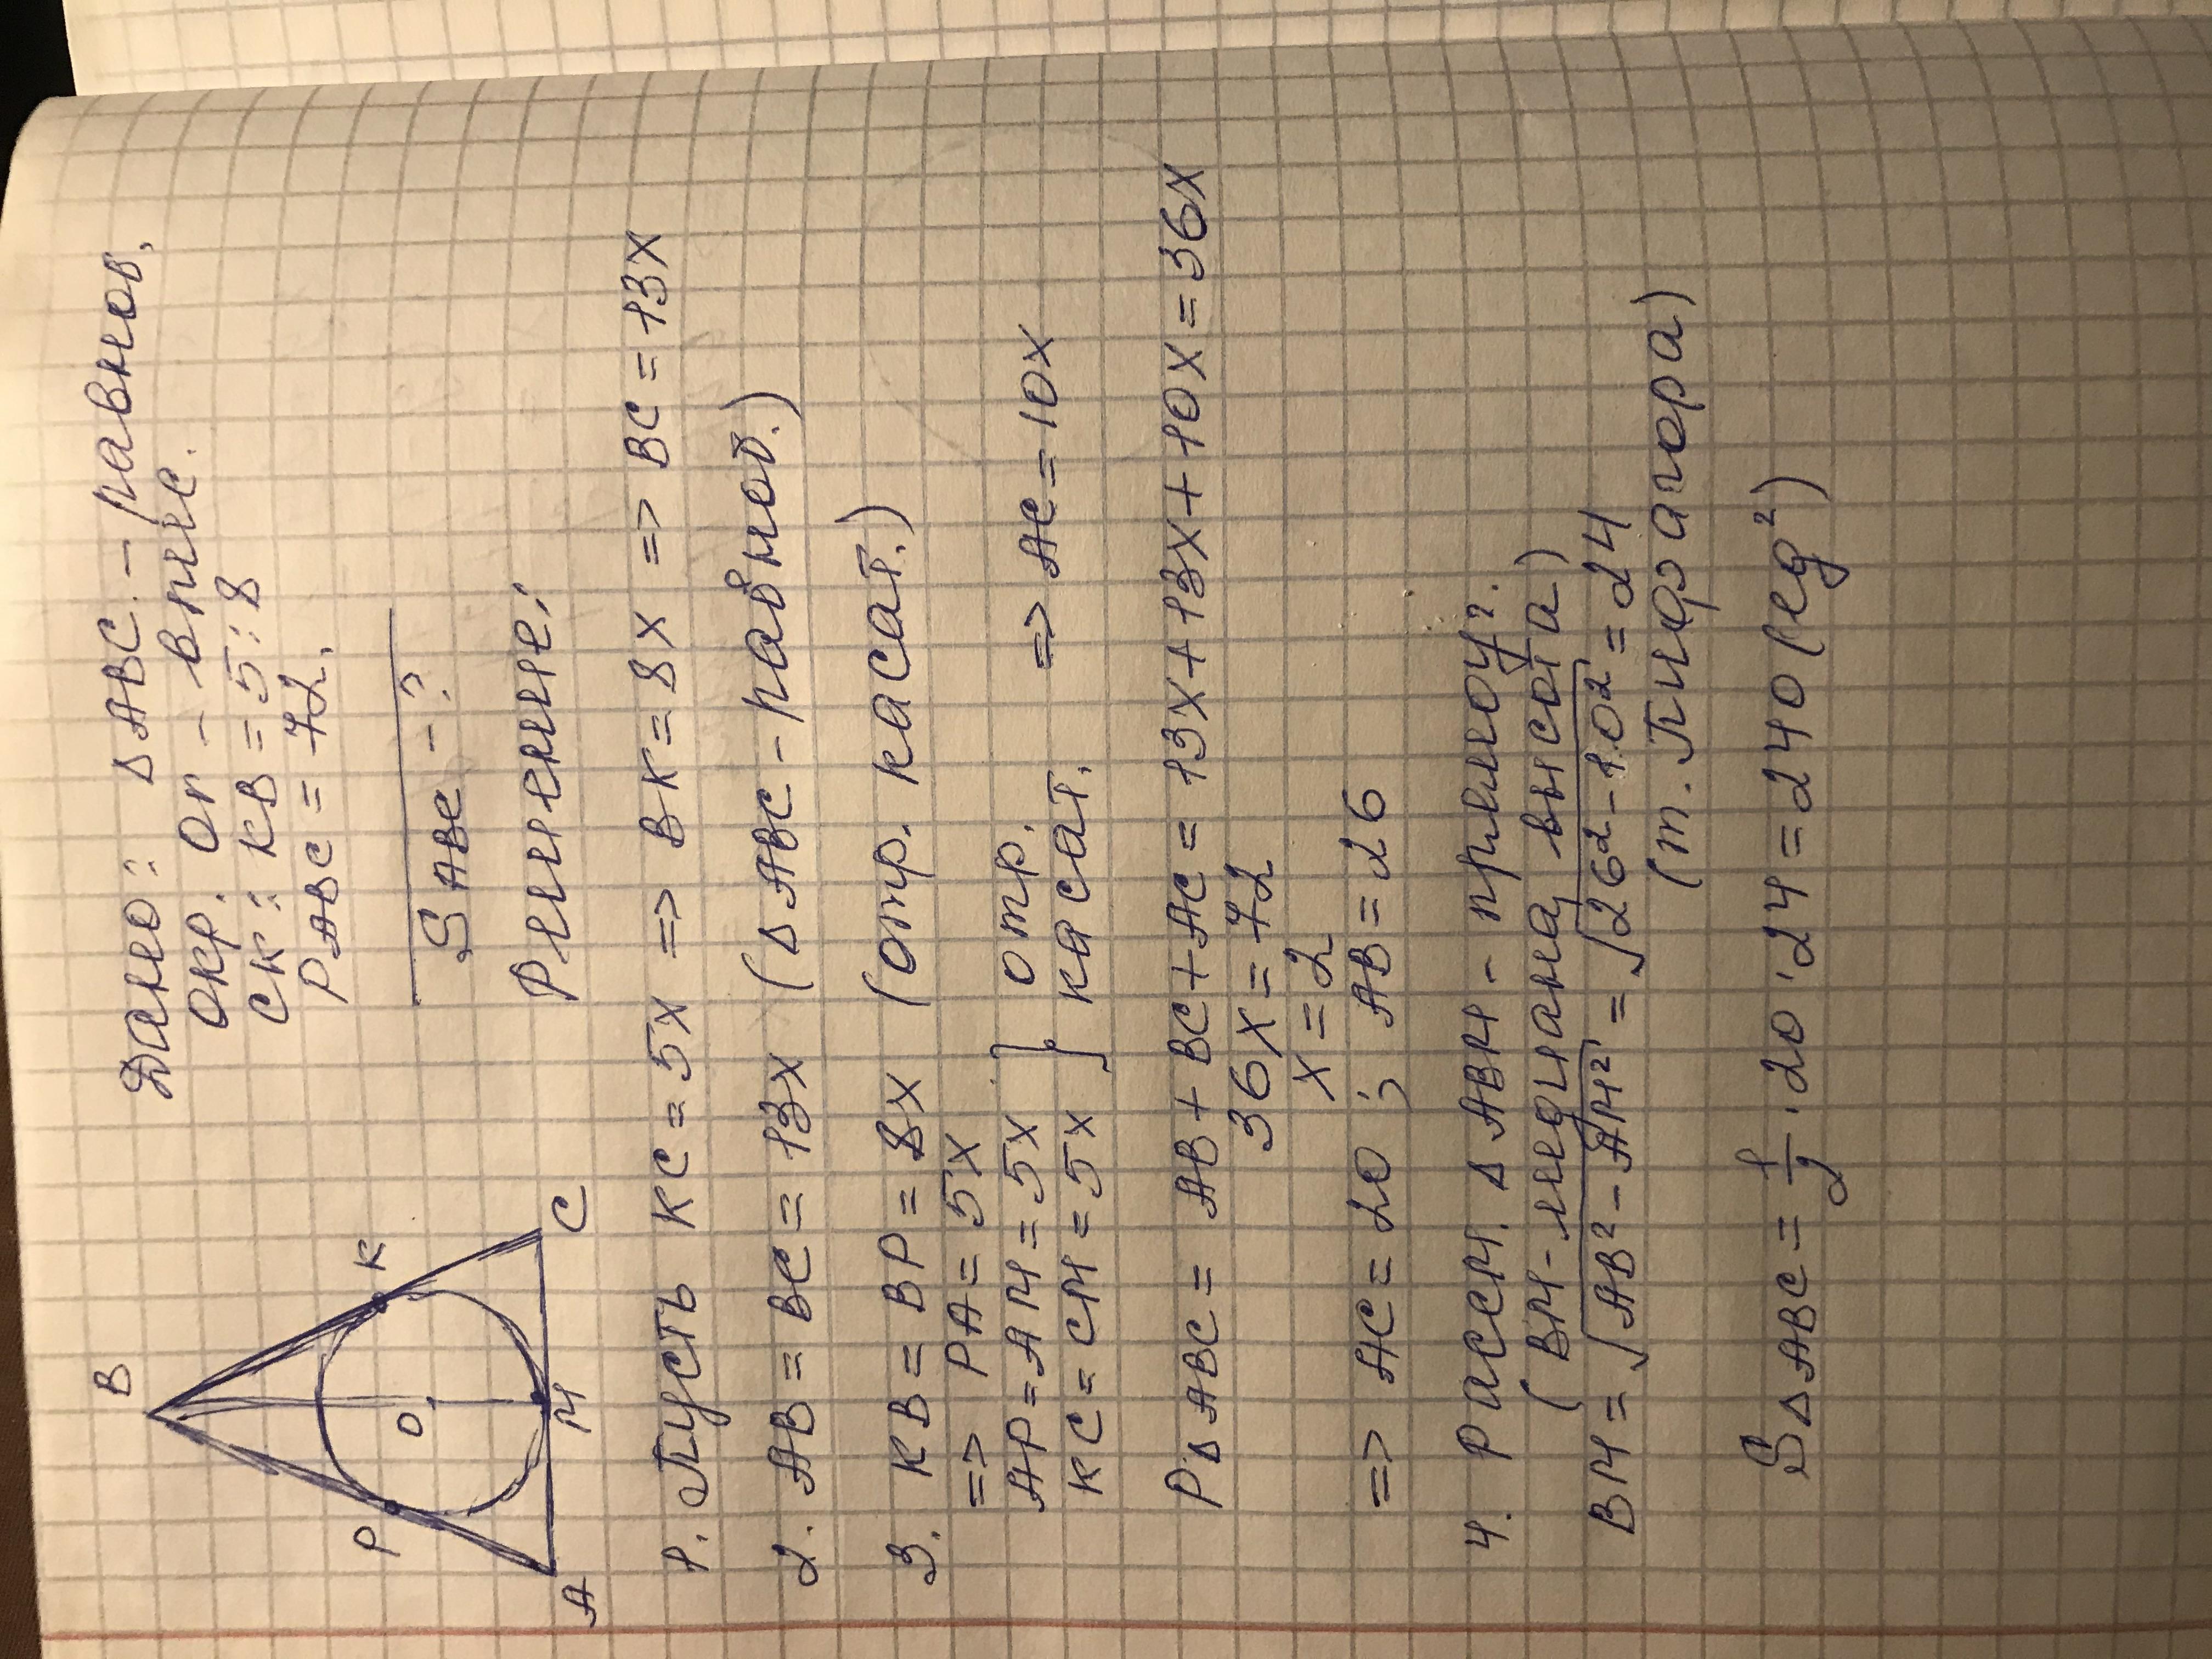 Дано: Δ ABC - равноб,
окр. Or - впис.
CK : KB = 5 : 8
P ABC = 72.
S ABC - ?
B
P
K
O
A
M
C
Решение:
1. Пусть KC = 5x => BK = 8x => BC = 13x
2. AB = BC = 13x (Δ ABC - равноб.)
3. KB = BP = 8x (отр. касат.)
=> PA = 5x
AP = AM = 5x } отр.
KC = CM = 5x } касат. => AC = 10x
P Δ ABC = AB + BC + AC = 13x + 13x + 10x = 36x
36x = 72
x = 2
=> AC = 20 ; AB = 26
4. Рассм. Δ ABM - прямоуг.
(BM - медиана, высота)
BM = √AB² - AM² = √26² - 10² = 24
(т. Пифагора)
S Δ ABC = 1/2 · 20 · 24 = 240 (ед²)